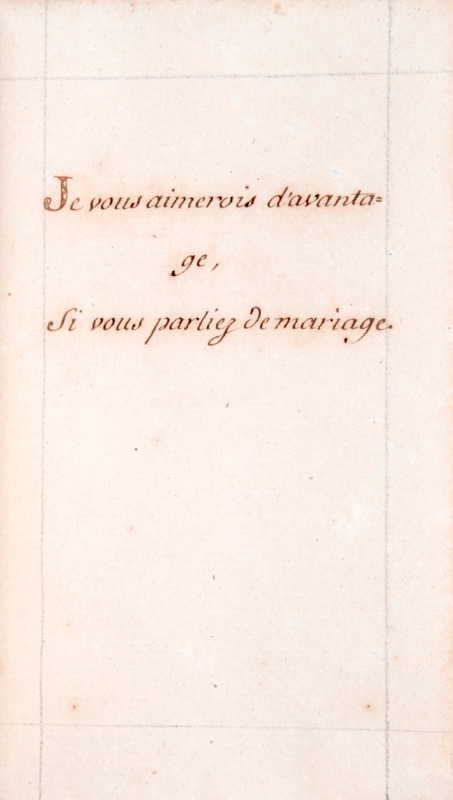 Je vous aimerois d'avanta=
ge,
Si vous parliez de mariage.